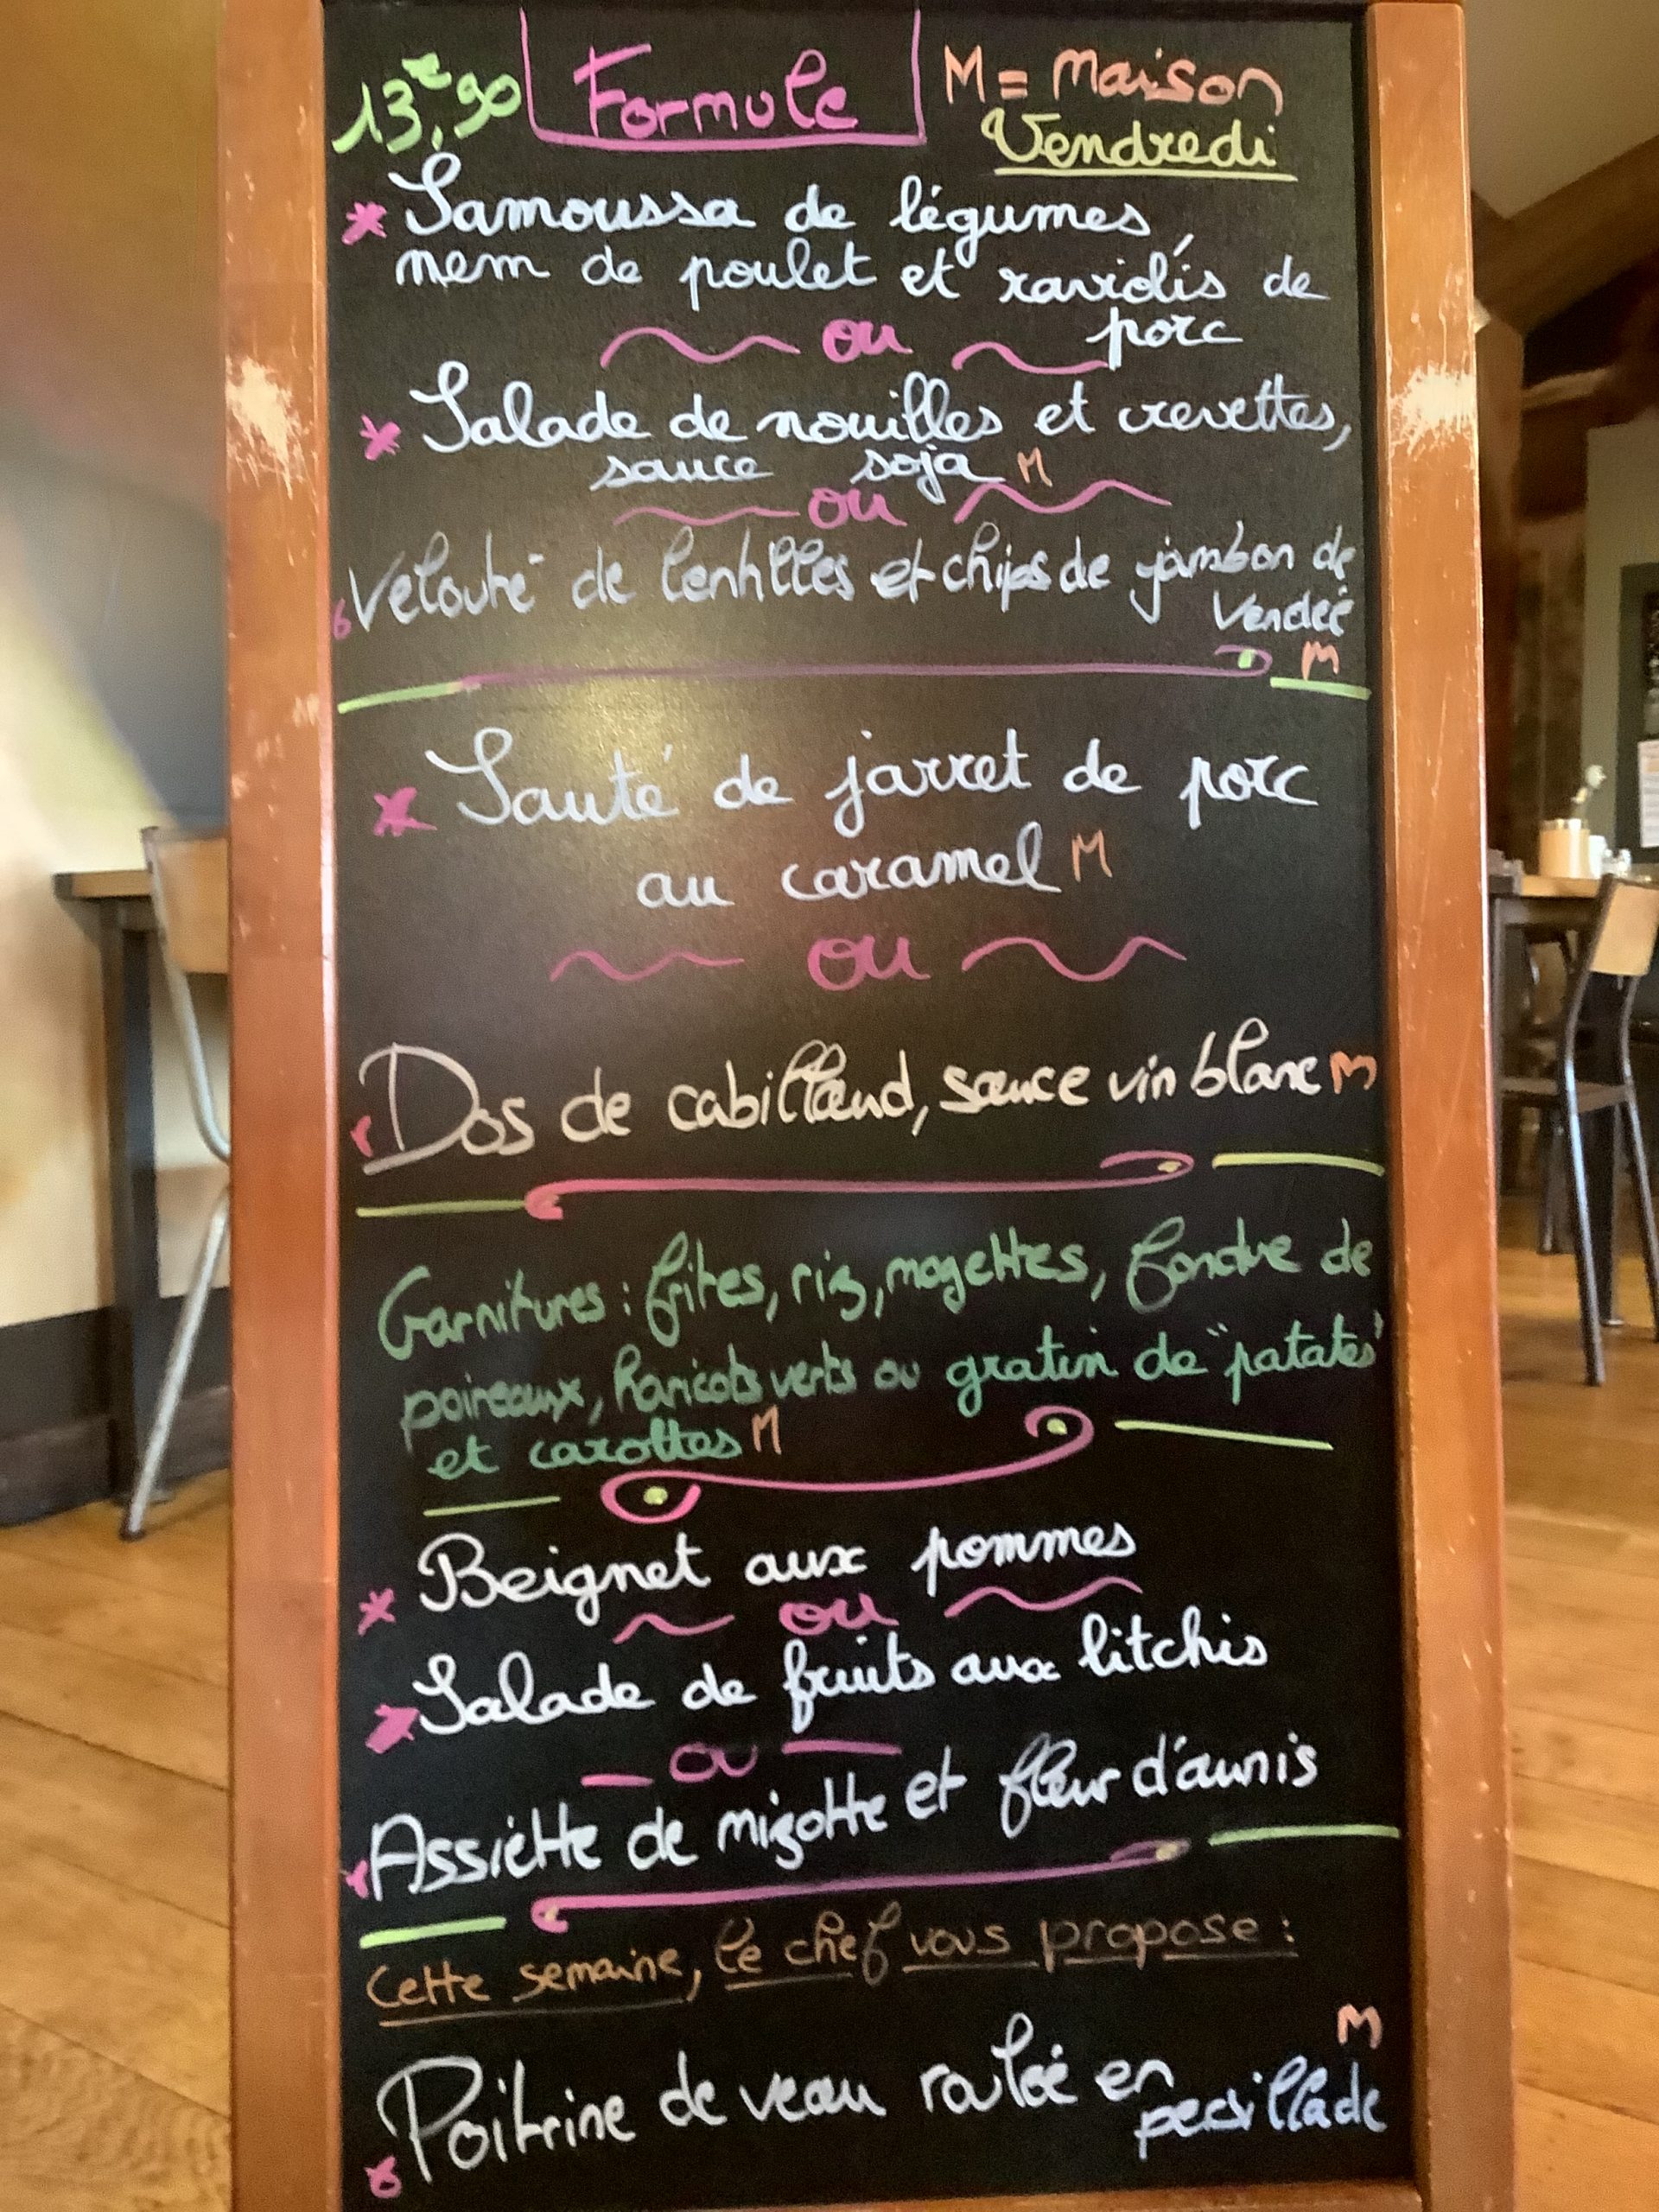 13€,90 Formule M = Maison
Vendredi
* Samoussa de légumes,
nem de poulet et raviolis de
porc
ou
* Salade de nouilles et crevettes,
sauce soja M
ou
Velouté de lentilles et chips de jambon de
Vendée
M
* Sauté de jarret de porc
au caramel M
ou
Dos de cabillaud, sauce vin blanc M
Garnitures : frites, riz, mogettes, fondue de
poireaux, haricots verts ou gratin de "patates"
et carottes M
* Beignet aux pommes
ou
* Salade de fruits aux litchis
ou
* Assiette de mizotte et fleur d'aunis
Cette semaine, le chef vous propose :
M
* Poitrine de veau roulée en
persillade